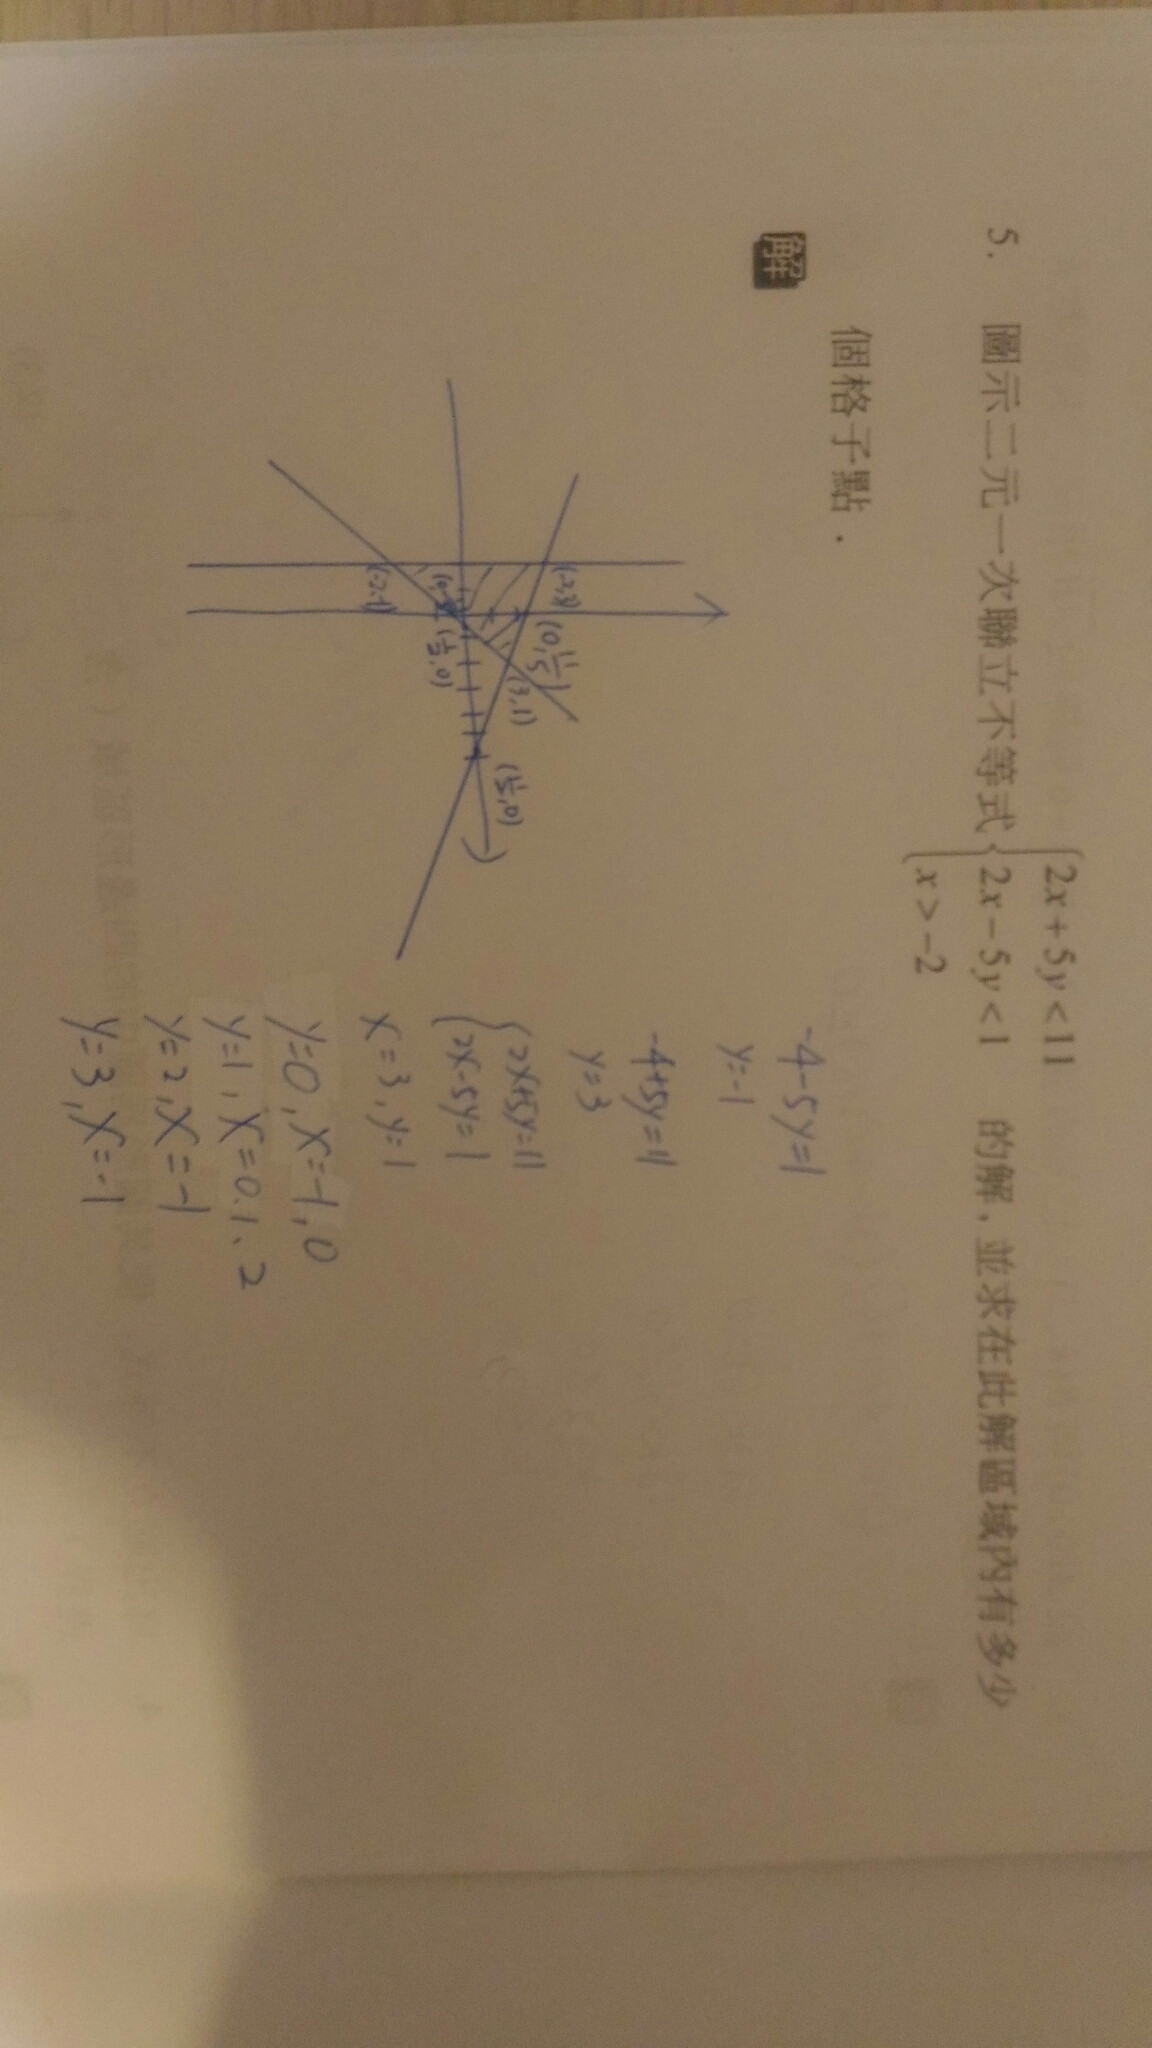 5. 圖示二元一次聯立不等式 { 2x+5y<11
2x−5y<1
x>−2 的解，並求在此解區域內有多少
個格子點．
解
(-2,3)
(0,11/5)
(3,1)
(11/2,0)
(1/2,0)
(-2,-1)
-4-5y=1
y=-1
-4+5y=11
y=3
{ 2x+5y=11
2x-5y=1
x=3, y=1
y=0, x=-1, 0
y=1, x=0.1、2
y=2, x=-1
y=3, x=-1